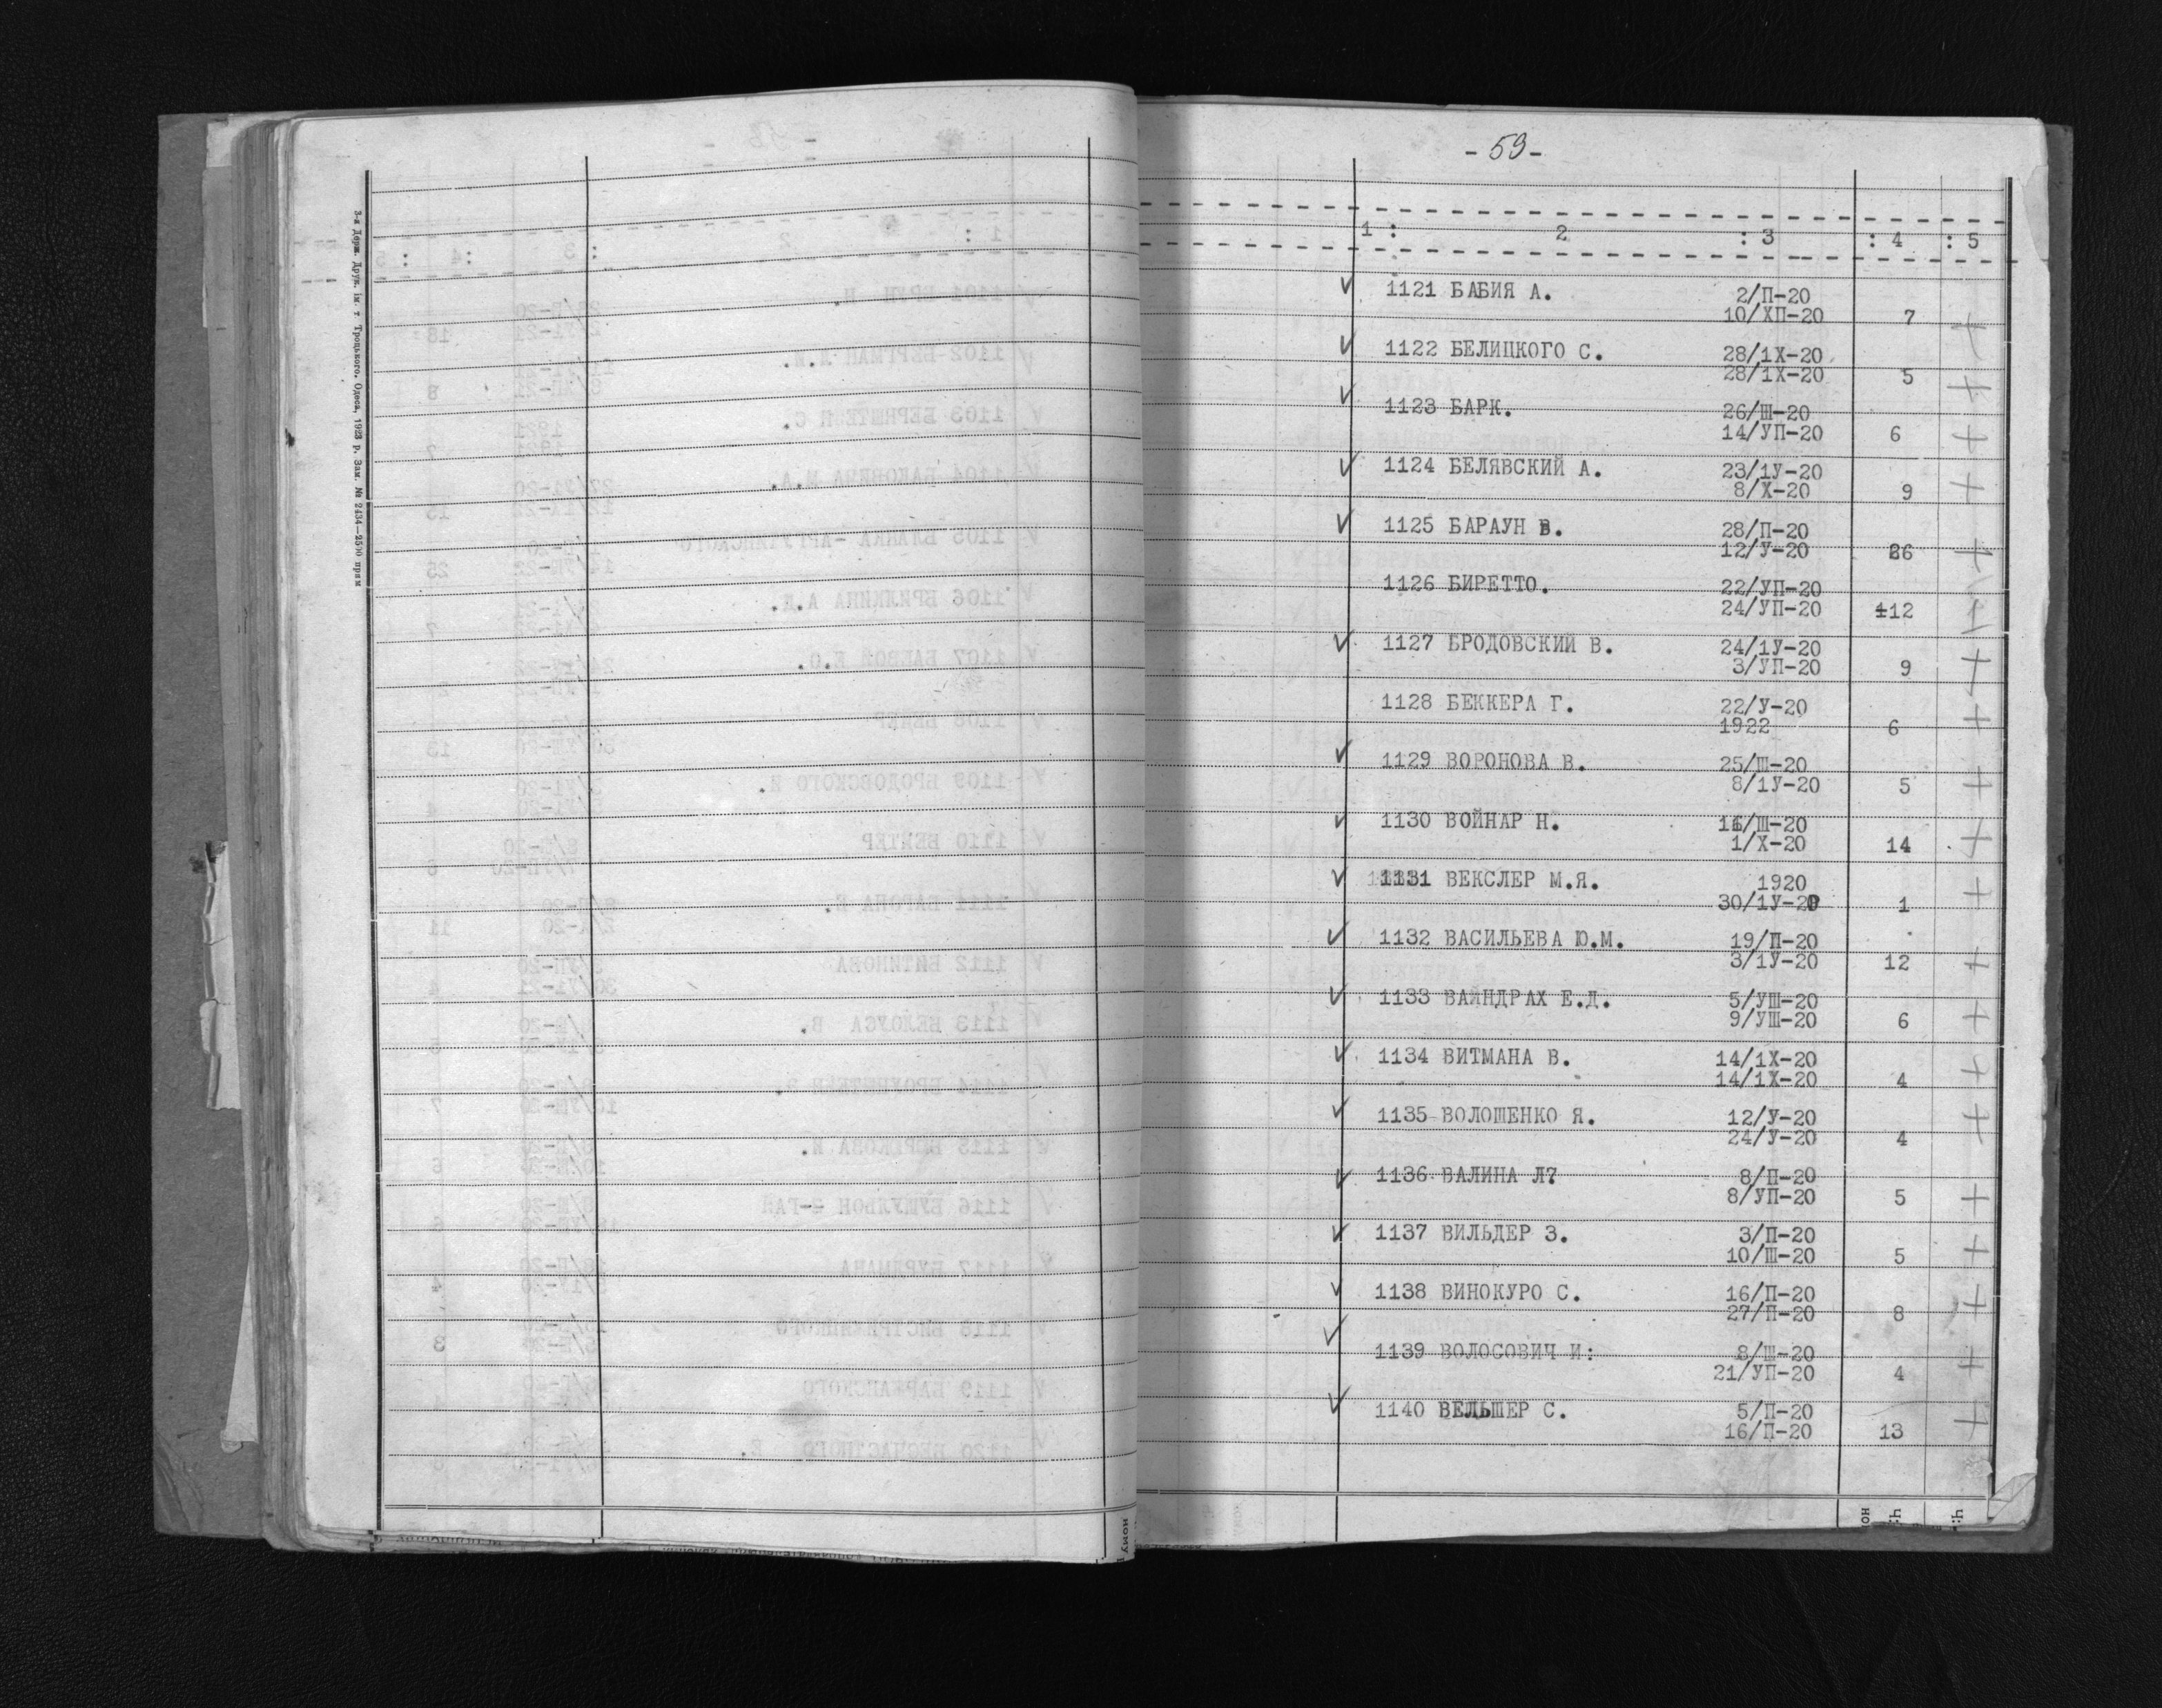 3-я Держ. Друк. ім. т. Троцького. Одеса, 1923 р. Зам. № 2434—2500 прим
- 59 -
1 : 2 : 3 : 4 : 5
✓ 1121 БАБИЯ А. 2/П-20
10/ХП-20 7 +
✓ 1122 БЕЛИЦКОГО С. 28/1Х-20
28/1Х-20 5 +
✓ 1123 БАРК. 26/Ш-20
14/УП-20 6 +
✓ 1124 БЕЛЯВСКИЙ А. 23/1У-20
8/Х-20 9 +
✓ 1125 БАРАУН В. 28/П-20
12/У-20 26 +
1126 БИРЕТТО. 22/УП-20
24/УП-20 12 +
✓ 1127 БРОДОВСКИЙ В. 24/1У-20
3/УП-20 9 +
1128 БЕККЕРА Г. 22/У-20
1922 6 +
✓ 1129 ВОРОНОВА В. 25/Ш-20
8/1У-20 5 +
✓ 1130 ВОЙНАР Н. 16/Ш-20
1/Х-20 14 +
✓ 1131 ВЕКСЛЕР М.Я. 1920
30/1У-20 1 +
✓ 1132 ВАСИЛЬЕВА Ю.М. 19/П-20
3/1У-20 12 +
✓ 1133 ВАЙНДРАХ Е.Д. 5/УШ-20
9/УШ-20 6 +
✓ 1134 ВИТМАНА В. 14/1Х-20
14/1Х-20 4 +
✓ 1135 ВОЛОШЕНКО Я. 12/У-20
24/У-20 4 +
✓ 1136 ВАЛИНА Л? 8/П-20
8/УП-20 5 +
✓ 1137 ВИЛЬДЕР З. 3/П-20
10/Ш-20 5 +
✓ 1138 ВИНОКУРО С. 16/П-20
27/П-20 8 +
✓ 1139 ВОЛОСОВИЧ И: 8/Ш-20
21/УП-20 4 +
✓ 1140 ВЕЛЬШЕР С. 5/П-20
16/П-20 13 +